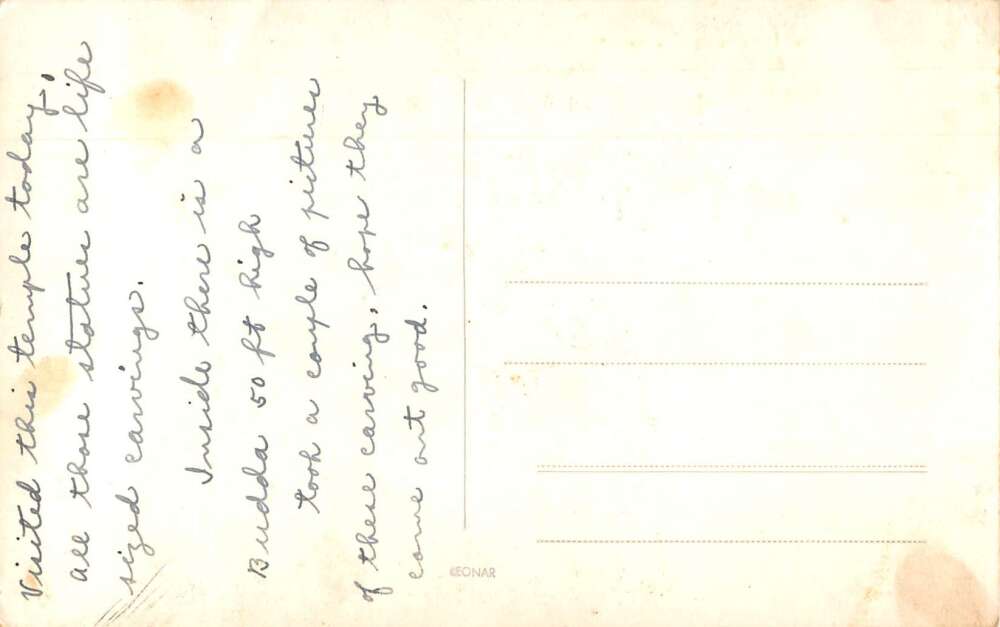 Visited this temple today,
all those statues are life
sized carvings.
Inside there is a
Budda 50 ft high
took a couple of pictures
of these carving, hope they
come out good.
LEONAR